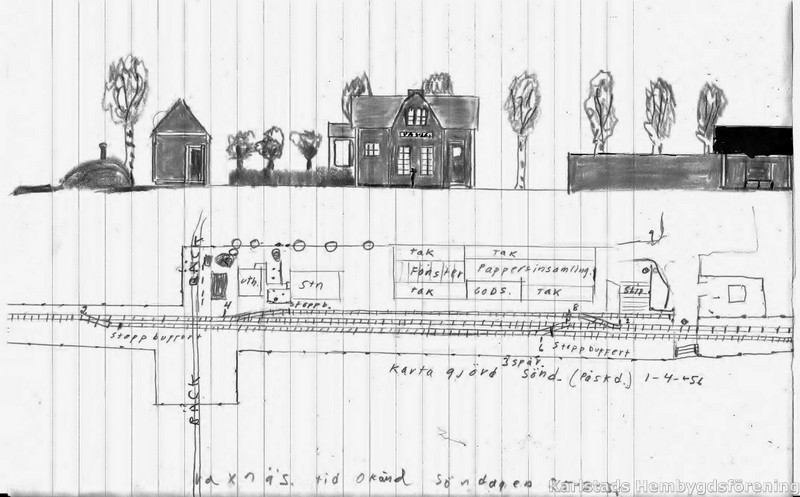 TAK TAK
FÖNSTER Pappersinsamling.
TAK GODS. TAK
BÄCK
uth.
Stn
Stoppb.
2
4
8
Stoppbuffert
6 Stoppbuffert
3 spår.
Karta gjörd Sönd. (Påskd.) 1-4-56
BÄCK
vaxnäs. tid okänd söndagen
Karlstads Hembygdsförening